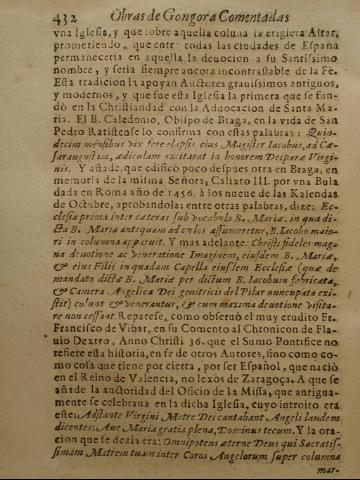 432 Obras de Gongora Comentadas
vna Iglesia, y que sobre aquella coluna la erigiera Altar,
prometiendo, que entre todas las ciudades de España
permaneceria en aquella la deuocion a su Santissimo
nombre, y seria siempre incontrastable de la Fè.
Esta tradicion la apoyan Auctores grauissimos antiguos,
y modernos, y que fue esta Iglesia la primera que se fun-
dò en la Christiandad con la Aduocacion de Santa Ma-
ria. El B. Caledonio, Obispo de Braga, en la vida de San
Pedro Ratistense lo confirma con estas palabras: Quin-
decim mensibus vix fere elapsis eius Magister Iacobus, ad Cæ-
saraugustam, ædiculam excitarat in honorem Deiparæ Virgi-
nis. Y añade, que edificò poco despues otra en Braga, en
memoria de la misma Señora, Calixto III. por vna Bula
dada en Roma año de 1456. à los nueue de las Kalendas
de Octubre, aprobandola: entre otras palabras, dize: Ec-
clesia prima inter cæteras sub vocabulo B. Mariæ. in qua di-
cta B. Maria antequam ad cælos assumeretur, B. Iacobo maio-
ri in columna apparuit. Y mas adelante: Christi fideles mag-
na deuotione ac veneratione Imaginem, eiusdem B. Mariæ,
& eius Filij in quadam Capella eiusdem Ecclesiæ (quæ de
mandato dictæ B. Mariæ per dictum B. Iacobum fabricata,
& Camera Angelica Dei genitricis del Pilar nuncupata exi-
stit) colunt & venerantur, & cum maxima deuotione visita-
re non cessant. Reparese, como obseruò el muy erudito Fr.
Francisco de Vibar, en su Comento al Chronicon de Fla-
uio Dextro, Anno Christi 36. que el Sumo Pontifice no
refiere esta historia, en fe de otros Autores, sino como co-
mo cosa que tiene por cierta, por ser Español, que naciò
en el Reino de Valencia, no lexos de Zaragoça. A que se
añade la auctoridad del Oficio de la Missa, que antigua-
mente se celebraua en la dicha Iglesia, cuyo introito era
este: Adstante Virgini Matre Dei cantabant Angeli laudem
dicentes: Aue Maria gratia plena, Dominus tecum. Y la ora-
cion que se dezia era: Omnipotens æterne Deus qui Sacratis-
simam Matrem tuam inter Coros Angelorum super columna
mar-